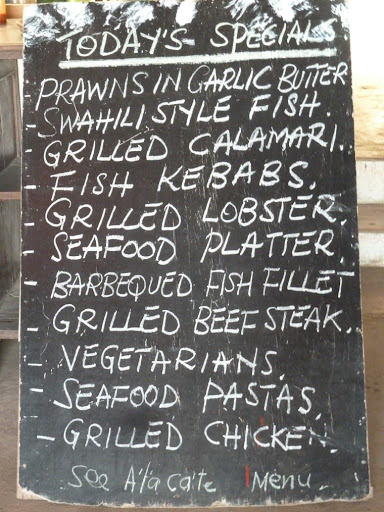 TODAY'S SPECIALS
PRAWNS IN GARLIC BUTTER
- SWAHILI STYLE FISH.
- GRILLED CALAMARI.
- FISH KEBABS.
- GRILLED LOBSTER.
- SEAFOOD PLATTER.
- BARBEQUED FISH FILLET
- GRILLED BEEF STEAK.
- VEGETARIANS.
- SEAFOOD PASTAS.
- GRILLED CHICKEN.
See A'la Carte Menu